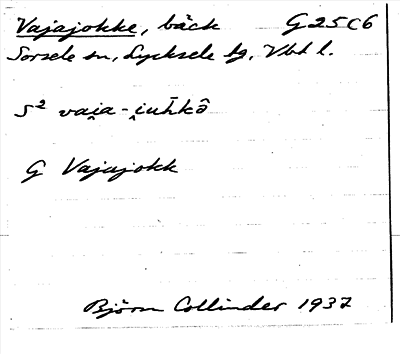 Vajajokke, bäck G 25 C 6
Sorsele sn, Lycksele tg, Vbt l.
S² vai̯a-i̯uh̄kô
G Vajajokk
Björn Collinder 1937